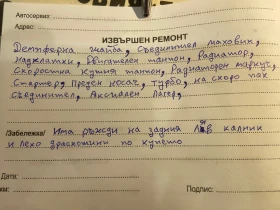 Автосервиз:
Адрес:
ИЗВЪРШЕН РЕМОНТ
Демпферна шайба, Съединител маховик,
Накладки, Двигателен тампон, Радиатор,
Скоростна кутия тампон, Радиаторен маркуч,
Стартер, Преден носач, Турбо, на скоро пак
съединител, Аксиален Лагер,
/Забележка/ Има ръжди на задния ляв калник
и леко драскотини по купето
Дата:
Подпис: